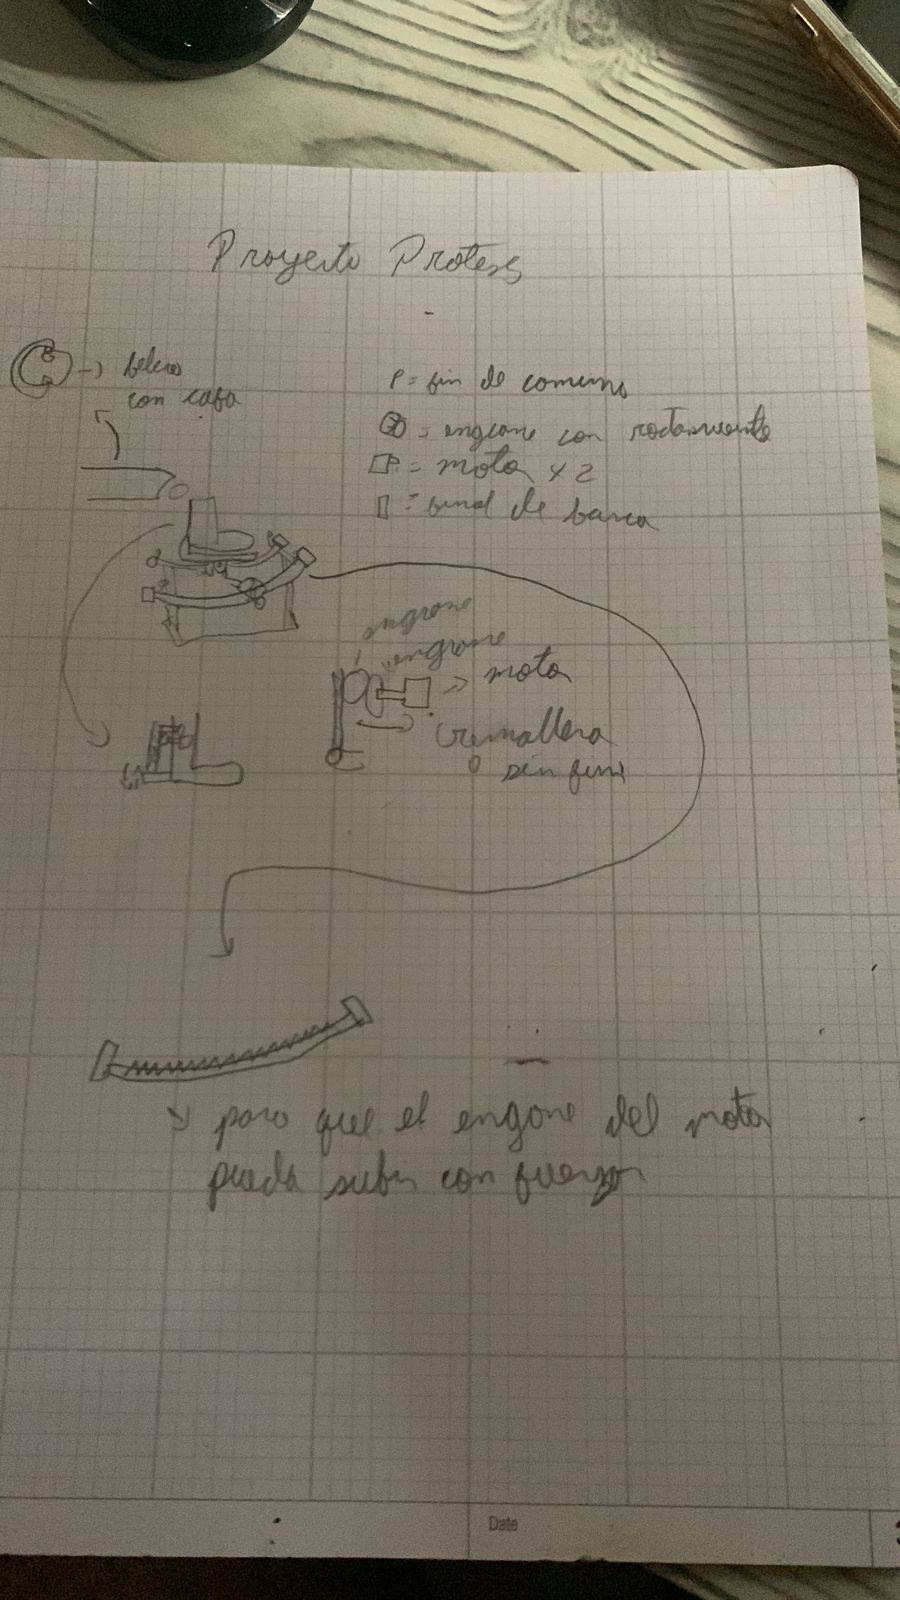 Proyecto Protesis
→ belcro
con cafa
P = fin de comienso
= engrane con rodamiento
= motor x 2
= final de barra
engrane
engrane
→ motor
Cremallera
o sin fin
para que el engrane del motor
pueda subir con fuerza
Date